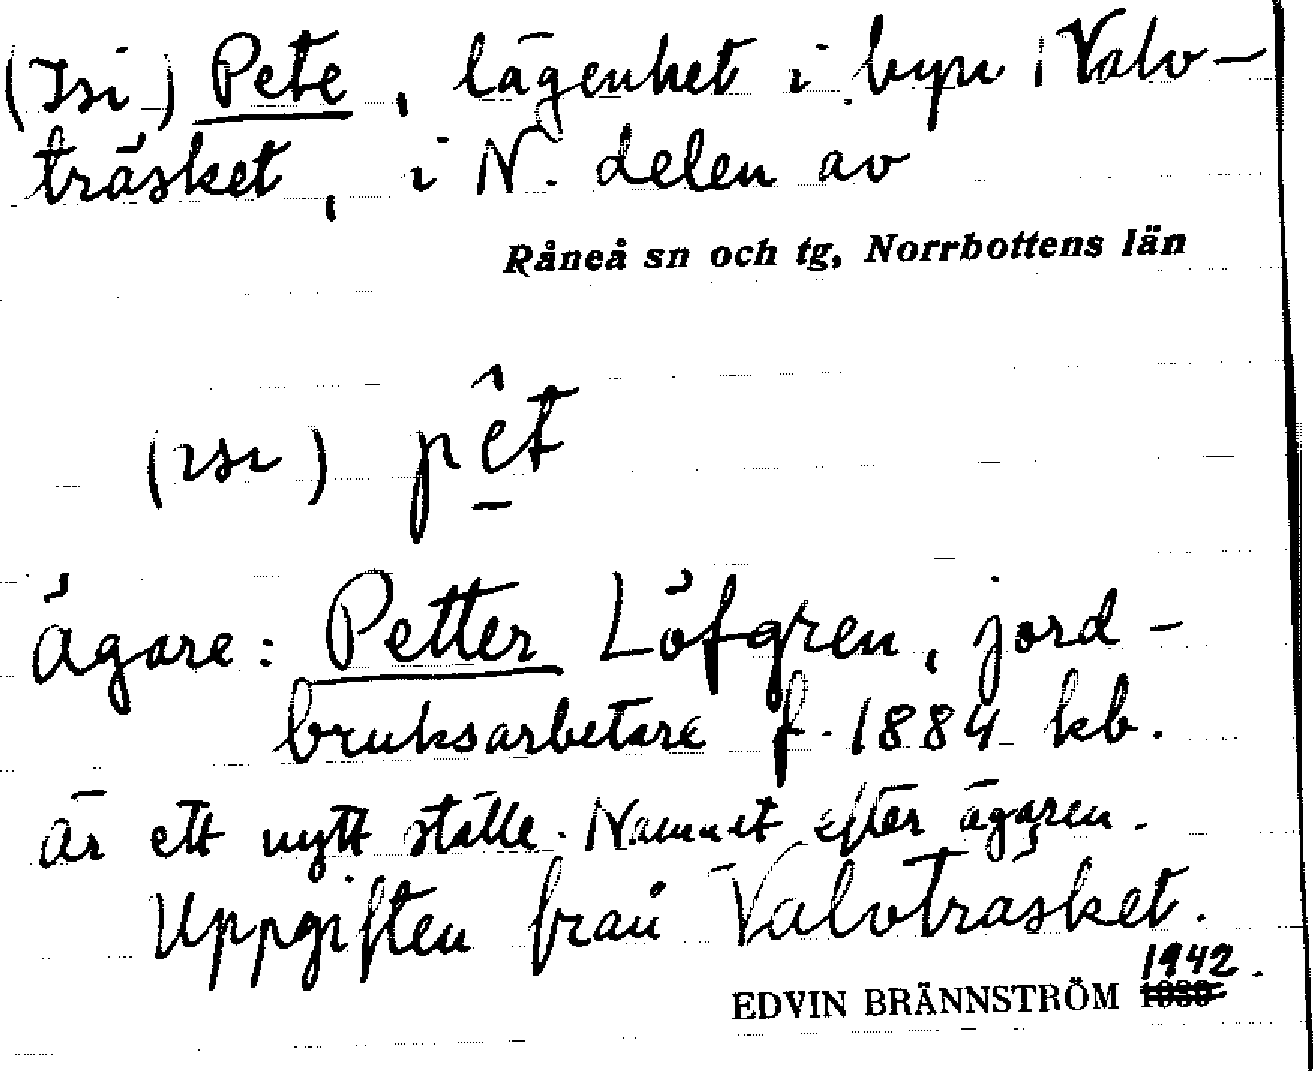 (Isi) Pete, lägenhet i byn i Valv-
träsket, i N. delen av
Råneå sn och tg, Norrbottens län
(ısı) pêt
Ägare: Petter Löfgren, jord-
bruksarbetare f. 1884 kb.
Är ett nytt ställe. Namnet efter ägaren.
Uppgiften från Valvträsket.
1942.
EDVIN BRÄNNSTRÖM